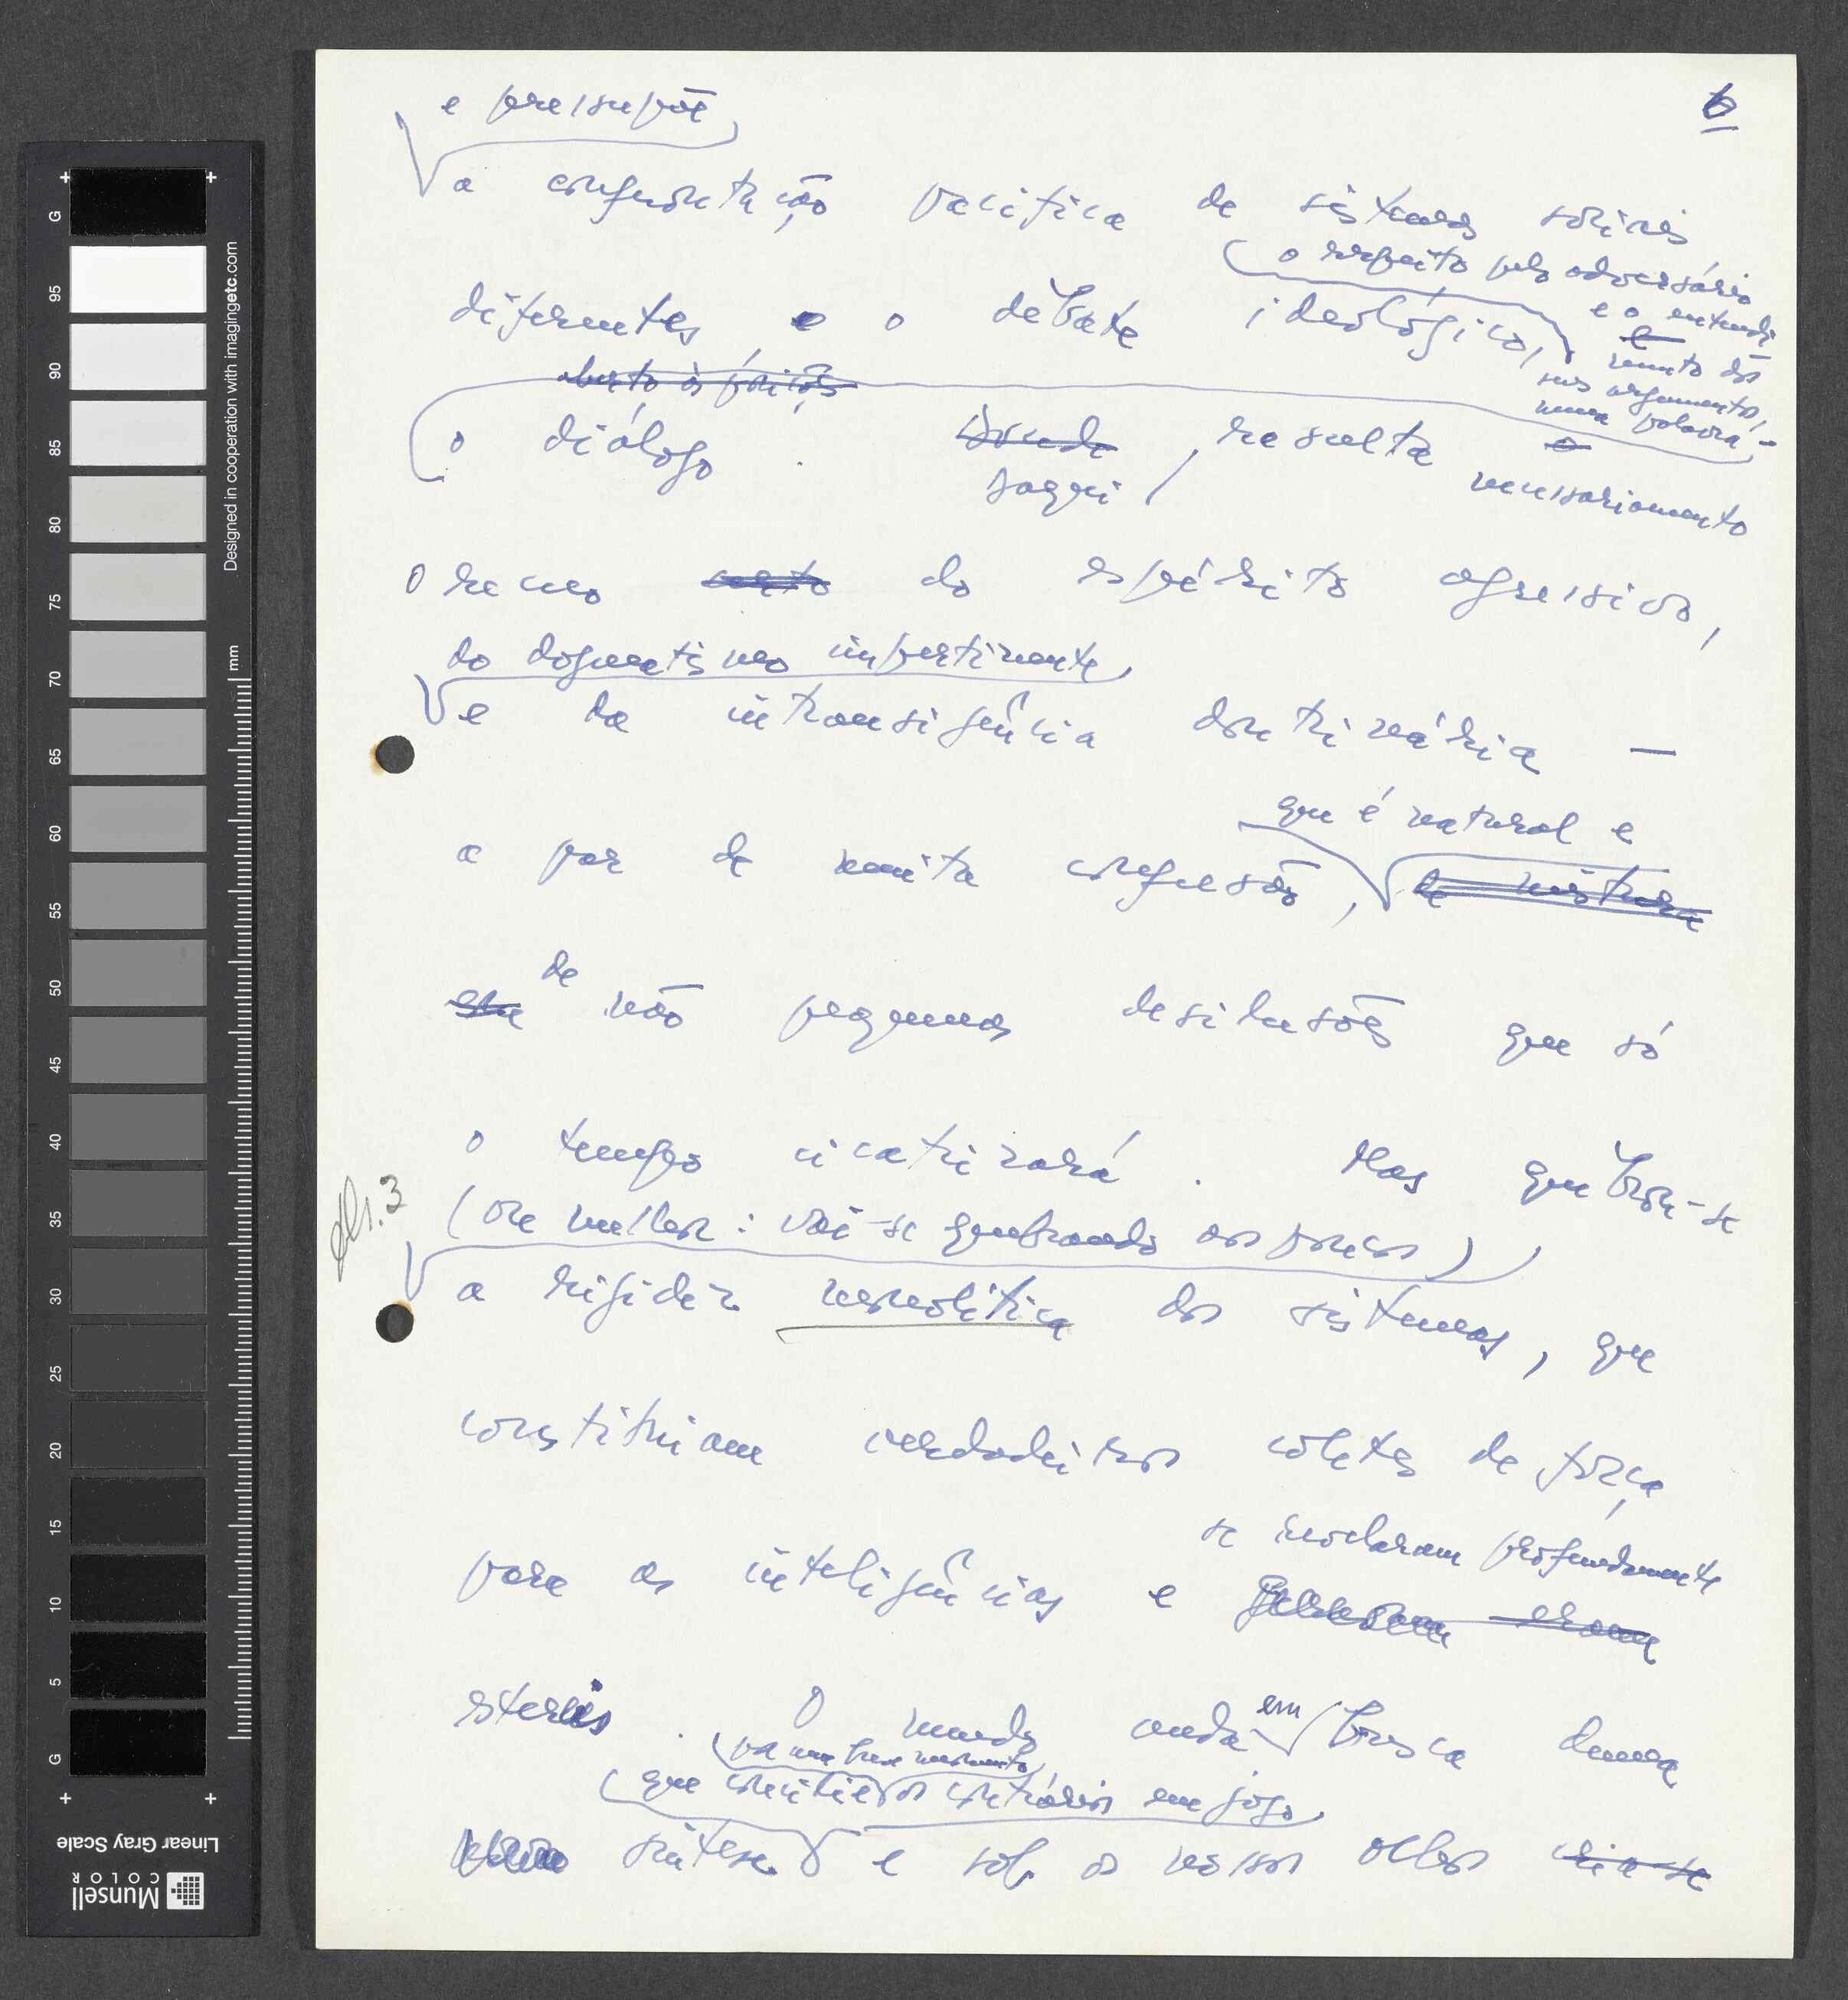 6
e pressupõe
a confrontação pacífica de sistemas sociais
o respeito pelo adversário
e o entendi
mento dos
seus argumentos,
numa palavra, –
diferentes e o debate ideológico,
aberto às posições
o diálogo. Donde
Daqui, resulta necessariamente
o recuo do espírito agressivo,
do dogmatismo impertinente,
e da intransigência doutrinária —
que é natural e
a par de muita confusão, de mistura
de
não pequenas desilusões que só
o tempo cicatrizará. Mas quebrou-se
(ou melhor: vai-se quebrando aos poucos)
a rigidez monolítica dos sistemas, que
constituíam verdadeiros coletes de força
se revelaram profundamente
para as inteligências e eram
estéreis. O mundo anda em busca duma
que concilie os contrários em jogo,
síntese e sob os nossos olhos cria-se
Designed in cooperation with imagingetc.com
mm
G 95 90 85 80 75 70 65 60 55 50 45 40 35 30 25 20 15 10 5 G
Linear Gray Scale
Munsell
COLOR